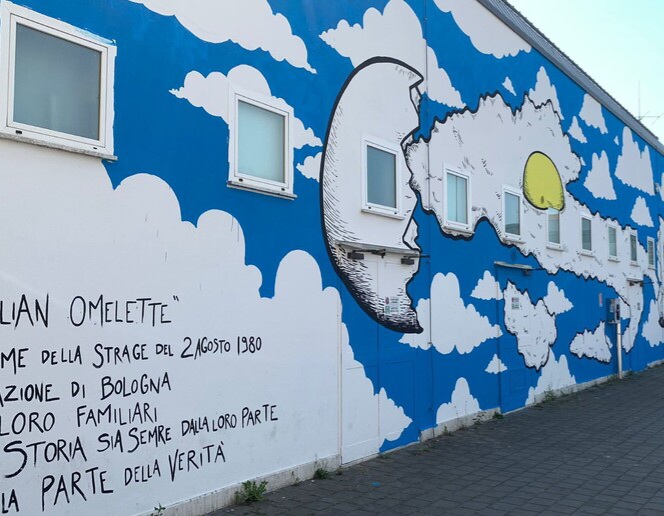 LIAN OMELETTE"
ME DELLA STRAGE DEL 2 AGOSTO 1980
AZIONE DI BOLOGNA
LORO FAMILIARI
STORIA SIA SEMPRE DALLA LORO PARTE
LA PARTE DELLA VERITÀ